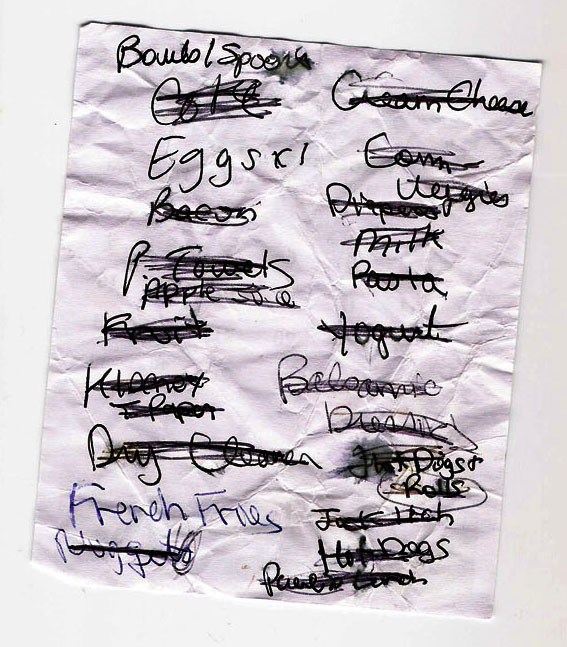 Bowls/Spoons
Coke
Eggs x 1
Bacon
P. Towels
Apple
Fruit
Kleenex
T. Paper
Dry Cleaner
French Fries
Nuggets
Cream Cheese
Corn
Veggies
Diapers
Milk
Pasta
Yogurt
Balsamic
Dressing
Hot Dogs
Rolls
Hot Dogs